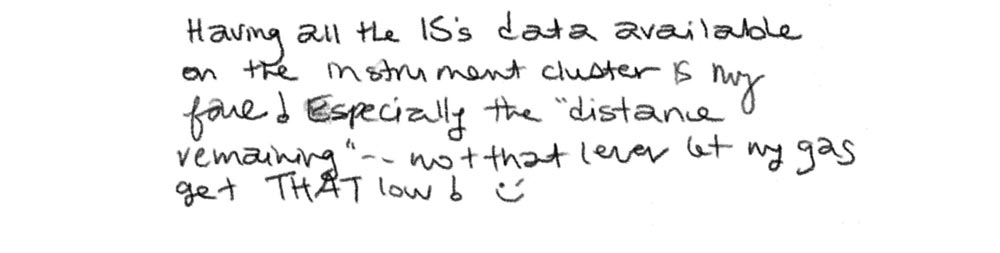 Having all the IS's data available
on the instrument cluster is my
fave! Especially the "distance
remaining" -- not that I ever let my gas
get THAT low! :)